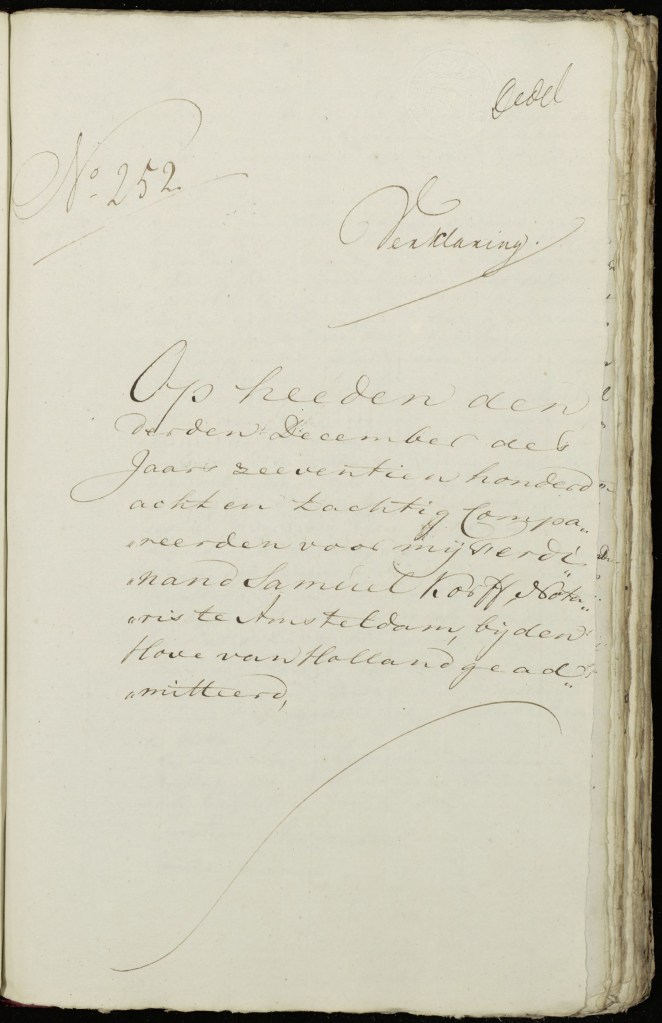 Dedel
No. 252.
Verklaring.
Op heeden den
derden December des
Jaars zeeventien honderd
acht en tachtig Compa„
„reerden voor mij Ferdi„
„nand Samuel Korff, Nota„
„ris te Amsteldam, bij den
Hove van Holland gead„
„mitteerd,